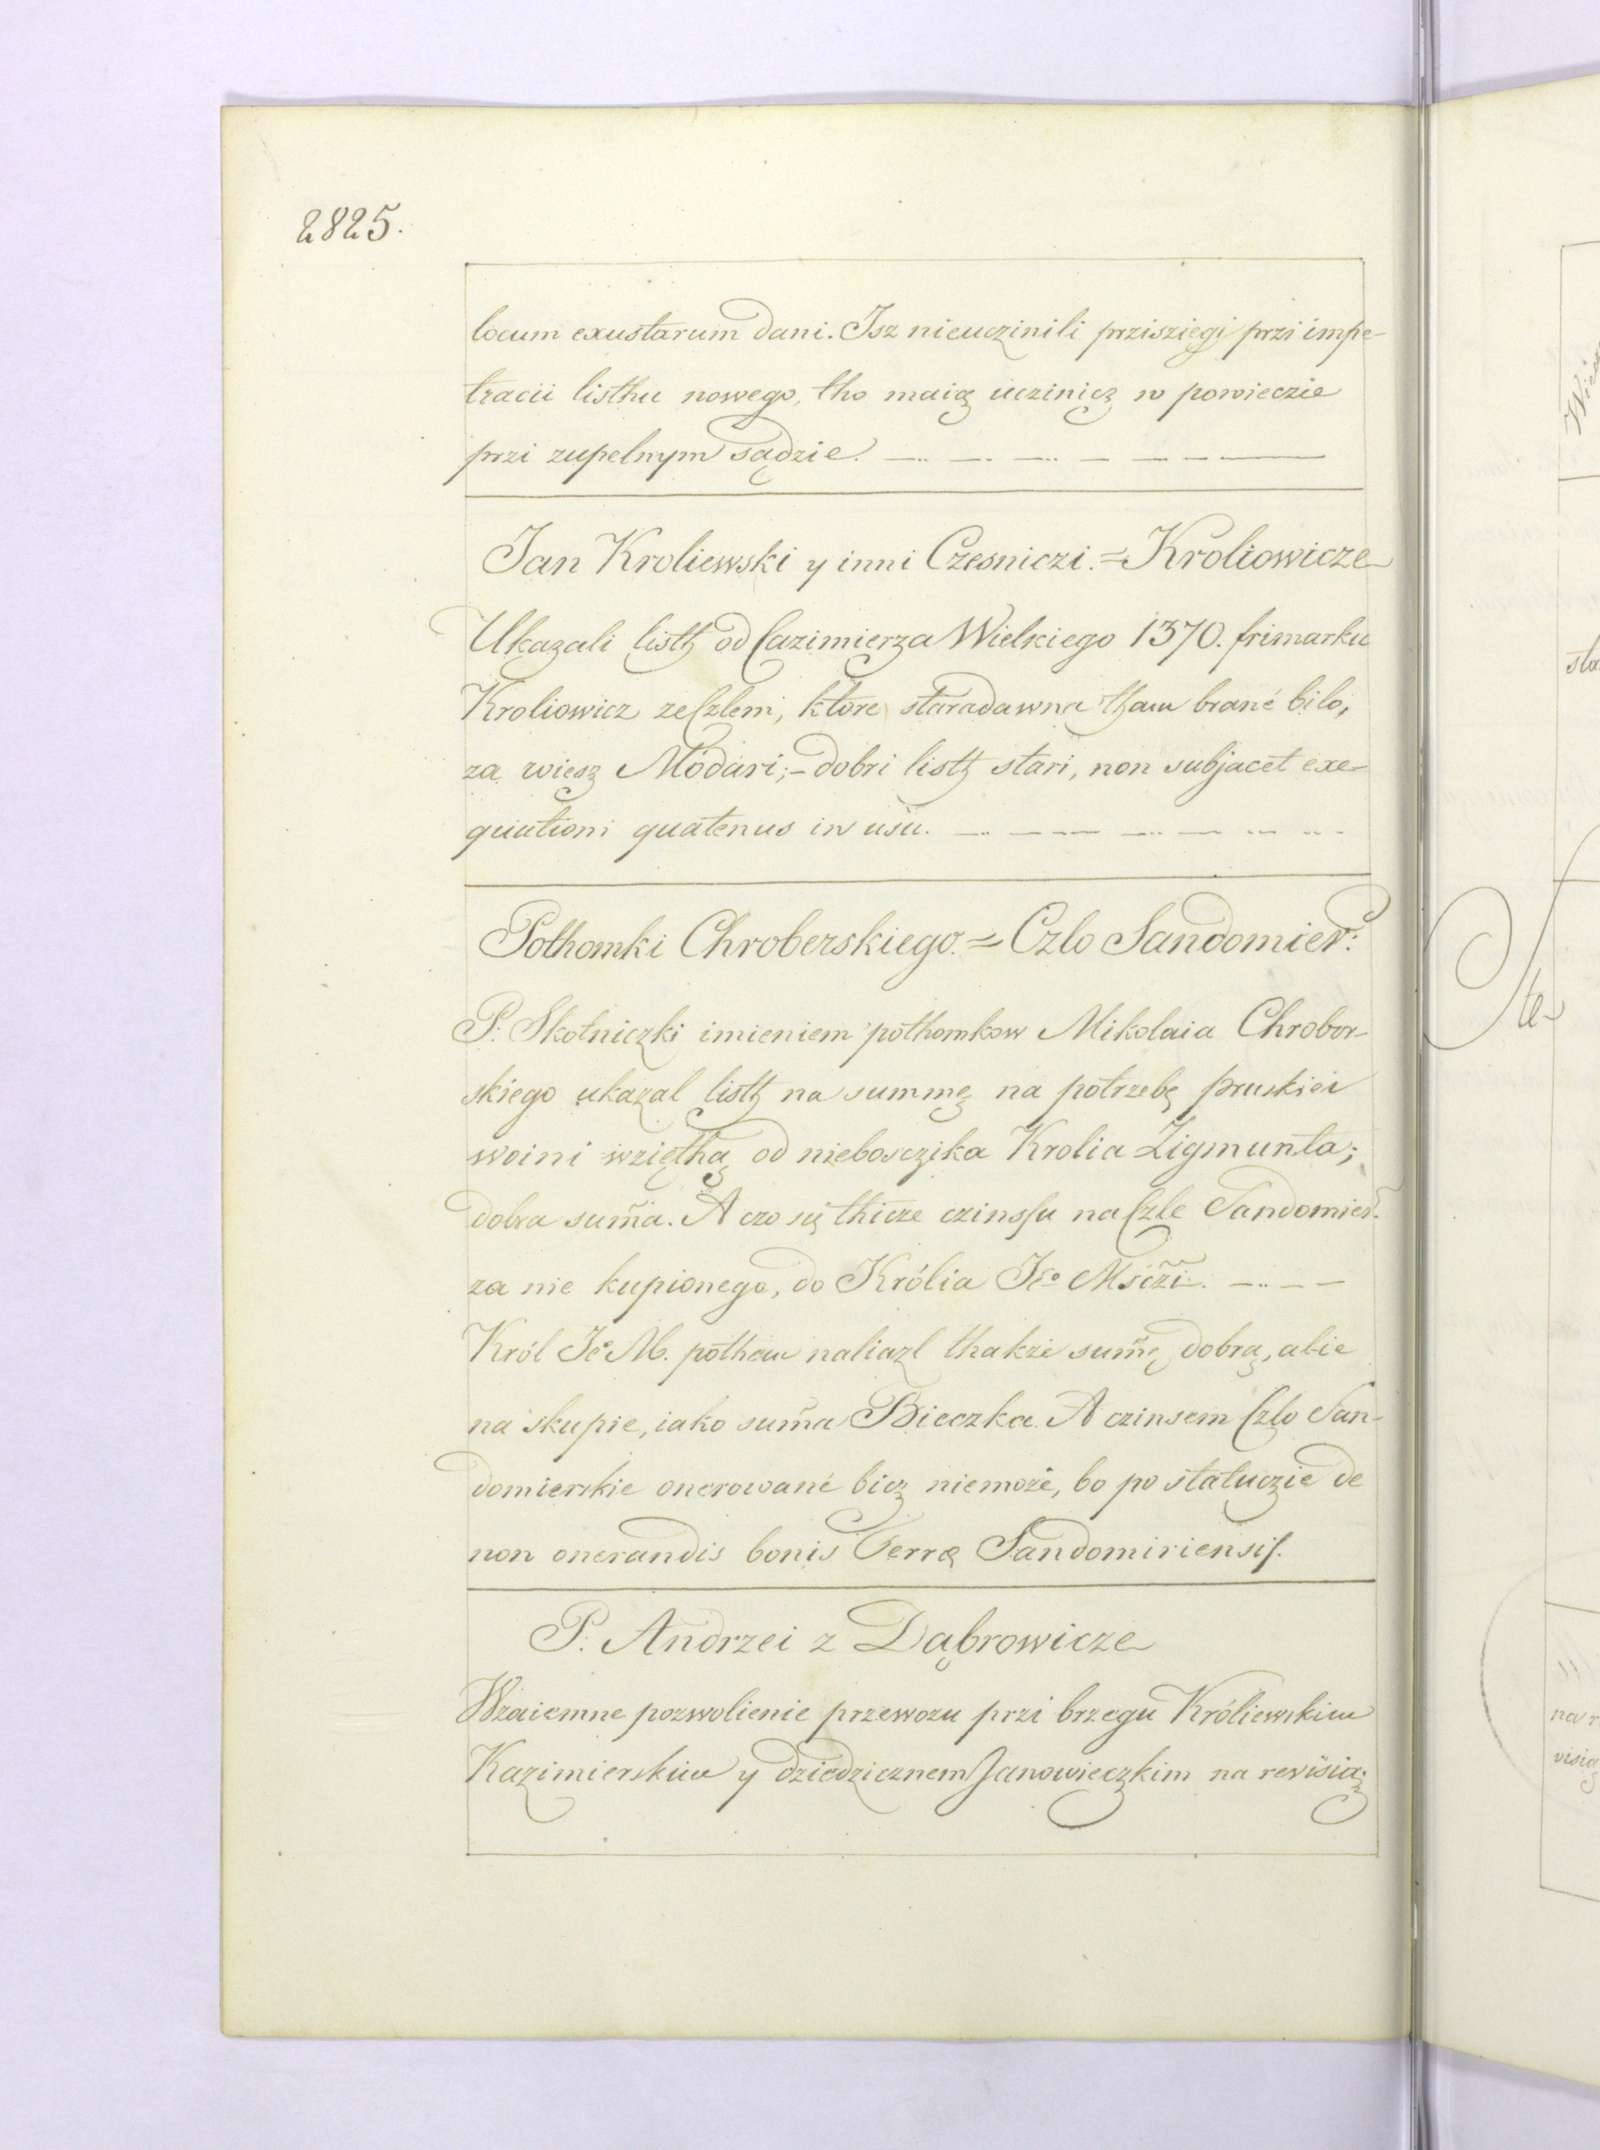 2825.
locum exustarum dani. Isz nieuczinili prziszięgi przi impe-
tracii listhu nowego, tho maią uczinicz w powieczie
przi zupelnym sądzie.
Jan Kroliewski y inni Czesniczi. = Kroliowicze
Ukazali listh od Cazimierza Wielkiego 1370. frimarku
Kroliowicz ze Czlem, ktore staradawna tham brané bilo,
za wiesz Modari; - dobri listh stari, non subjacet exe-
quutioni quatenus in usu.
Pothomki Chroberskiego. = Czlo Sandomier:
P. Skotniczki imieniem pothomkow Mikolaia Chrobor-
skiego ukazal listh na summę na potrzebę pruskiei
woini wzięthą od nieboszczika Krolia Zigmunta;
dobra sum̃a. A czo się thicze czinssu na Czle Sandomier-
za nie kupionego, do Królia Jeo Msczi.
Król Jeo M. pothem naliazl thakże sum̃ę dobrą, alie
na skupie, iako sum̃a Bieczka. A czinsem Czlo San-
domierskie onerowané bicz niemoże, bo po statuczie de
non onerandis bonis Terræ Sandomiriensis.
P. Andrzei z Dąbrowicze
Wzaiemne pozwolienie przewozu przi brzegu Króliewskim
Kazimierskim y dziedzicznem Janowieczkim na revisią;